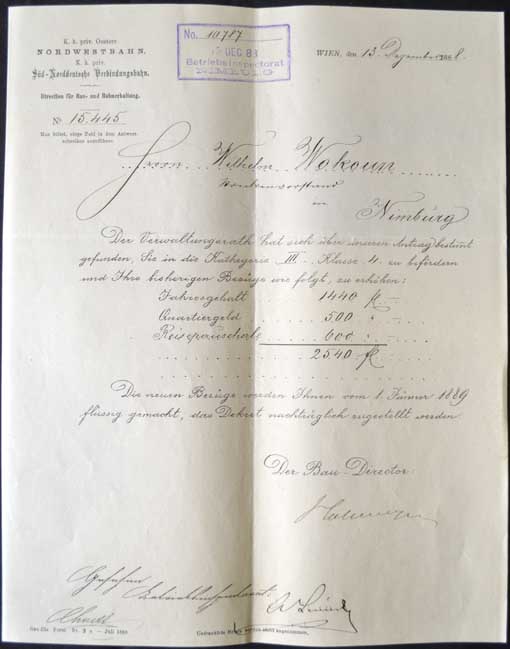 K. k. priv. Oesterr.
NORDWESTBAHN.
K. k. priv.
Süd-Norddeutsche Verbindungsbahn.
Direction für Bau- und Bahnerhaltung.
№ 15.445
Man bittet, obige Zahl in dem Antwort-
schreiben anzuführen.
No. 10787
15 DEC 88
Betriebsinspectorat
NIMBURG
WIEN, den 13. Dezember 1888.
Herrn Wilhelm Wokoun
in
Nimburg
Der Verwaltungsrath hat sich über unseren Antrag bestimt
gefunden, Sie in die Kathegorie III. Klasse 4. zu befördern
und Ihre bisherigen Bezüge wie folgt, zu erhöhen:
Jahresgehalt 1440 fl –
Quartiergeld 500 " –
Reisepauschale 600 " –
2540 fl
Die neuen Bezüge werden Ihnen vom 1. Jänner 1889
flüssig gemacht, das Dekret nachträglich zugestellt werden.
Der Bau-Director:
Gesehen
Juli 1888.
Unfrankirte Briefe werden nicht angenommen.